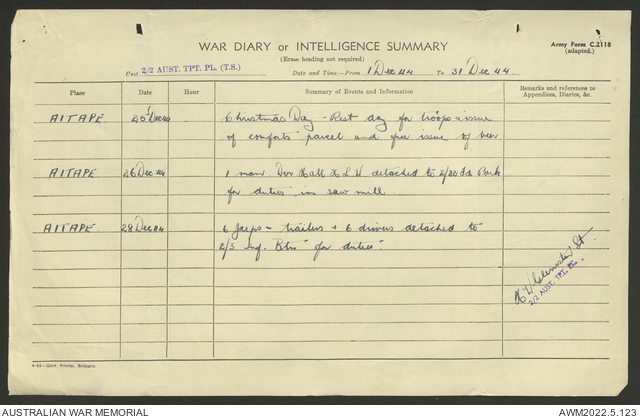 WAR DIARY or INTELLIGENCE SUMMARY
Army Form C.2118
(adapted.)
(Erase heading not required)
Unit 2/2 AUST. TPT. PL. (T.S.) Date and Time.—From 1 Dec 44 To 31 Dec 44
Place Date Hour Summary of Events and Information Remarks and references to Appendices, Diaries, &c.
AITAPE 25 Dec 44 Christmas Day - Rest day for troops - issue
of comforts parcel and free issue of beer
AITAPE 26 Dec 44 1 man Dvr Hall detached to Park
for duties in saw mill
AITAPE 28 Dec 44 6 Jeeps - trailers + 6 drivers detached to
2/3. Inf. Btn "for duties".
2/2 AUST. TPT. PL.
4-43—Govt. Printer, Brisbane.
AUSTRALIAN WAR MEMORIAL AWM2022.5.123